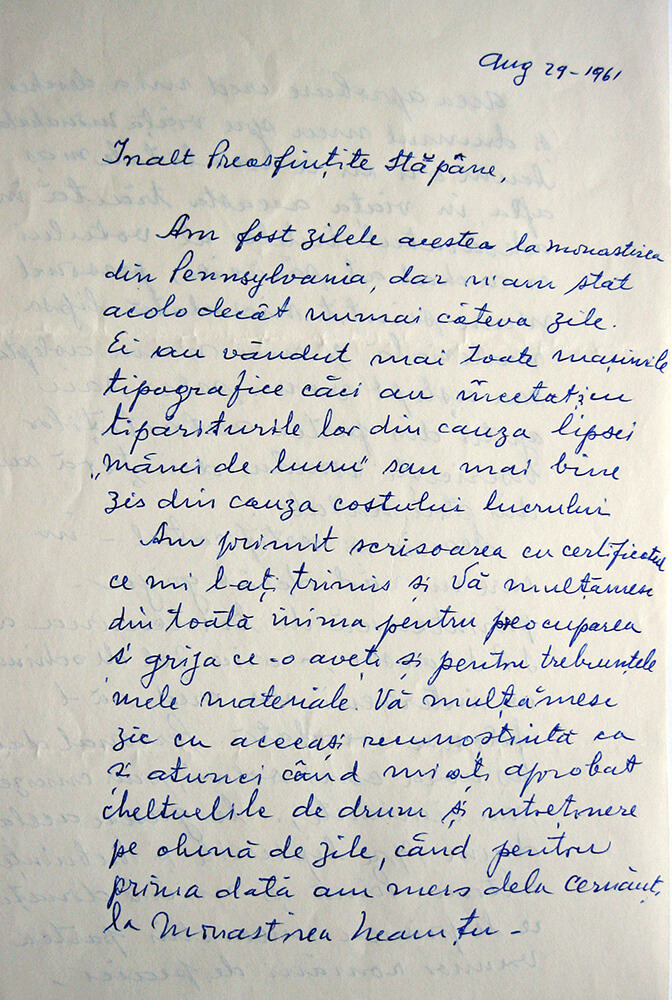 Aug 29-1961
Inalt Preasfințite Stăpâne,
Am fost zilele acestea la monastirea
din Pennsylvania, dar n'am stat
acolo decât numai câteva zile.
Ei au vândut mai toate mașinile
tipografice căci au încetat cu
tipăriturile lor din cauza lipsei
„mânei de lucru" sau mai bine
zis din cauza costului lucrului
Am primit scrisoarea cu certificatul
ce mi l-ați trimis și Vă mulțămesc
din toată inima pentru preocuparea
și grija ce-o aveți și pentru trebuințele
mele materiale. Vă mulțămesc
zic cu aceeași recunoștință ca
și atunci când mi ați aprobat
cheltuelile de drum și întreținere
pe o lună de zile, când pentru
prima dată am mers dela Cernăuți
la Monastirea Neamțu -